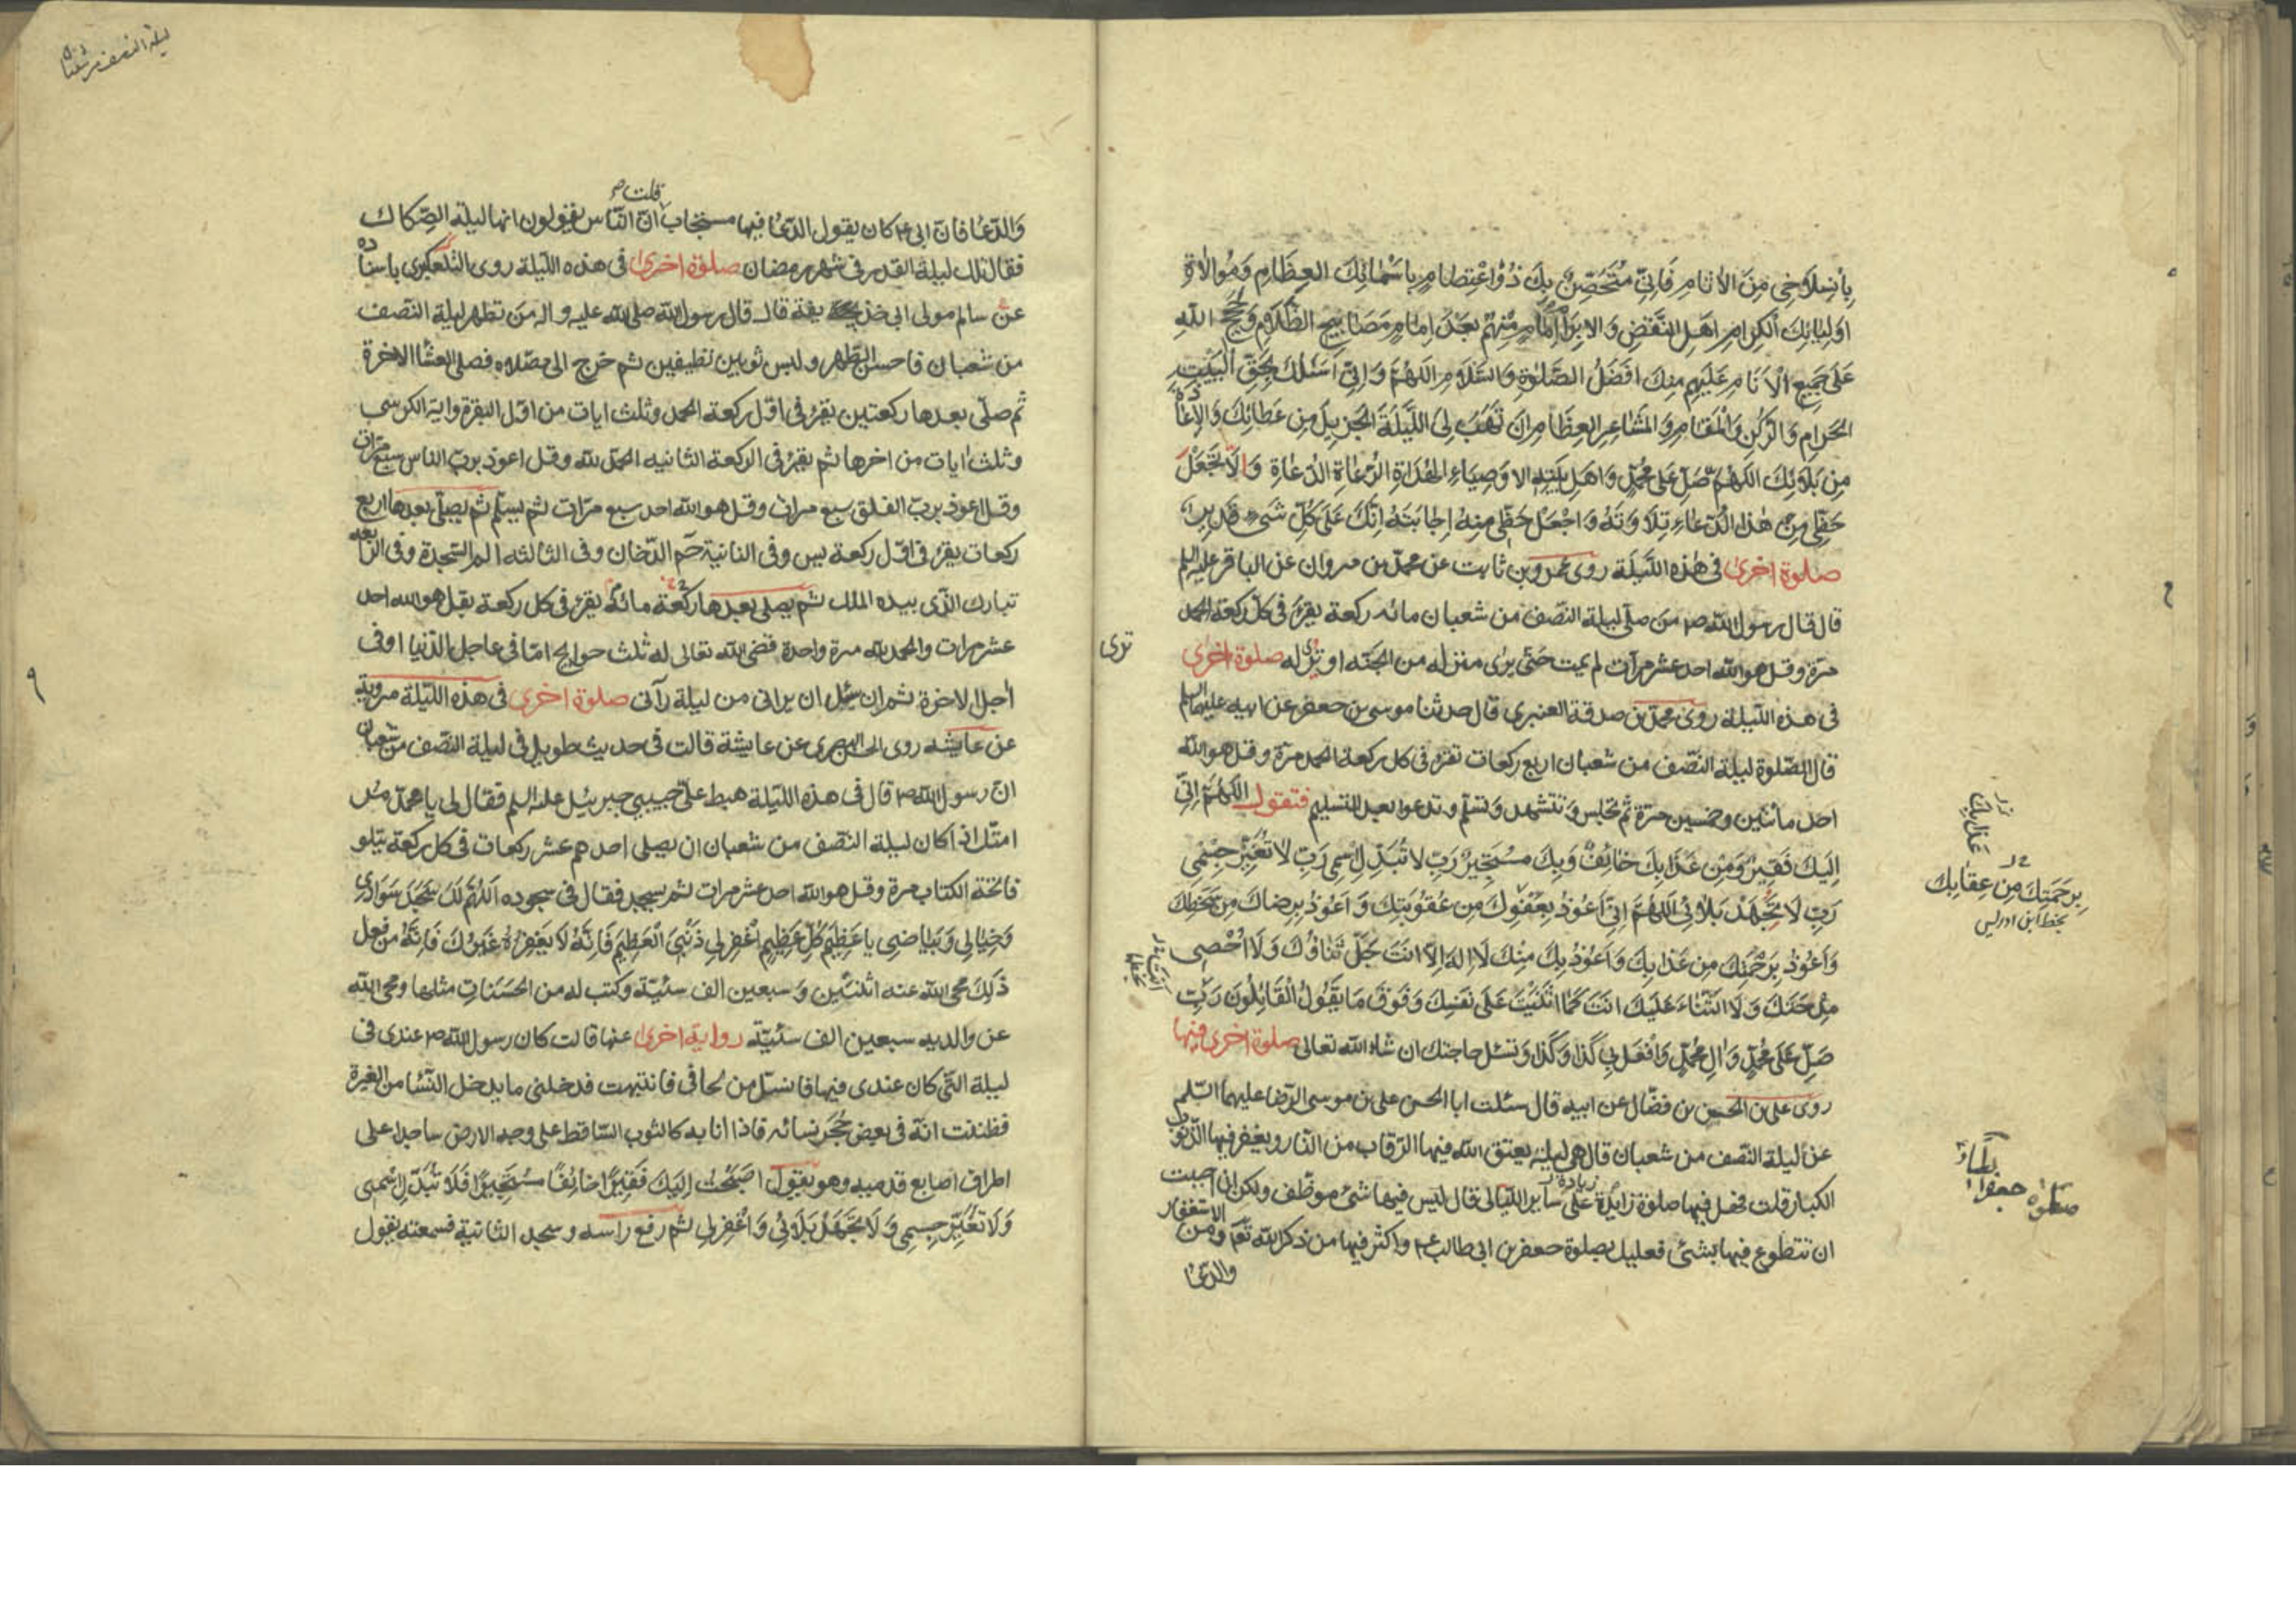 بِانْسِلَاخِي مِنَ الْأَنَامِ فَإِنِّي مُتَحَصِّنٌ بِكَ ذُو اعْتِصَامٍ بِأَسْمَائِكَ الْعِظَامِ وَمُوَالَاةِ
أَوْلِيَائِكَ الْكِرَامِ أَهْلِ النَّقْضِ وَالْإِبْرَامِ إِمَامٍ مِنْهُمْ بَعْدَ إِمَامٍ مَصَابِيحِ الظَّلَامِ وَحُجَجِ اللّٰهِ
عَلَى جَمِيعِ الْأَنَامِ عَلَيْهِمْ مِنْكَ أَفْضَلُ الصَّلَوةِ وَالسَّلَامِ اللّٰهُمَّ وَإِنِّي أَسْئَلُكَ بِحَقِّ الْبَيْتِ
الْحَرَامِ وَالرُّكْنِ وَالْمَقَامِ وَالْمَشَاعِرِ الْعِظَامِ أَنْ تَهَبَ لِيَ اللَّيْلَةَ الْجَزِيلَ مِنْ عَطَائِكَ وَالْإِعَاذَةَ
مِنْ بَلَائِكَ اللّٰهُمَّ صَلِّ عَلَى مُحَمَّدٍ وَأَهْلِ بَيْتِهِ الْأَوْصِيَاءِ الْهُدَاةِ الرُّعَاةِ الدُّعَاةِ وَأَلَّا تَجْعَلَ
حَظِّي مِنْ هٰذَا الدُّعَاءِ تِلَاوَتَهُ وَاجْعَلْ حَظِّي مِنْهُ إِجَابَتَهُ إِنَّكَ عَلَى كُلِّ شَيْءٍ قَدِيرٌ
صلوة اخرى فى هذه اللّيلة روى عمرو بن ثابت عن محمد بن مروان عن الباقر عليه السلم
قال قال رسول اللّه ص من صلّى ليلة النّصف من شعبان مائه ركعة يقرء فى كلّ ركعة الحمد
مرّة وقل هو اللّه احد عشر مرّات لم يمت حتّى يرى منزله من الجنّه او ترى له صلوة اخرى
فى هذه اللّيلة روى محمد بن صدقة العنبرى قال حدثنا موسى بن جعفر عن ابيه عليهما السلم
قال الصّلوة ليلة النّصف من شعبان اربع ركعات تقرء فى كل ركعة الحمد مرّة وقل هو اللّه
احد مأتين وخمسين مرّة ثم تجلس وتتشهد وتسلّم وتدعوا بعد التسليم فتقول اللّهُمّ إنّي
إِلَيْكَ فَقِيرٌ وَمِنْ عَذَابِكَ خَائِفٌ وَبِكَ مُسْتَجِيرٌ رَبِّ لَا تُبَدِّلْ اِسْمِي رَبِّ لَا تُغَيِّرْ جِسْمِي
رَبِّ لَا تُجْهِدْ بَلَائِي اللّٰهُمَّ إِنِّي أَعُوذُ بِعَفْوِكَ مِنْ عُقُوبَتِكَ وَأَعُوذُ بِرِضَاكَ مِنْ سَخَطِكَ
وَأَعُوذُ بِرَحْمَتِكَ مِنْ عَذَابِكَ وَأَعُوذُ بِكَ مِنْكَ لَا إِلٰهَ إِلَّا أَنْتَ جَلَّ ثَنَاؤُكَ وَلَا أُحْصِي
مِدْحَتَكَ وَلَا الثَّنَاءَ عَلَيْكَ أَنْتَ كَمَا أَثْنَيْتَ عَلَى نَفْسِكَ وَفَوْقَ مَا يَقُولُ الْقَائِلُونَ رَبِّ
صَلِّ عَلَى مُحَمَّدٍ وَآلِ مُحَمَّدٍ وَافْعَلْ بِي كَذَا وَكَذَا وَتسئل حاجتك ان شاء اللّه تعالى صلوة اخرى فيها
روى على بن الحسن بن فضّال عن ابيه قال سئلت ابا الحسن على بن موسى الرّضا عليهما السّلم
عن ليلة النّصف من شعبان قال هى ليلة يعتق اللّه فيها الرّقاب من النّار ويغفر فيها الذّنوب
الكبار قلت فهل فيها صلوة زايدة زيادة على ساير اللّيالى قال ليس فيها شئ موظّف ولكن ان احببت
ان تتطوع فيها بشئ فعليك بصلوة جعفر بن ابى طالب ع واكثر فيها من ذكر اللّه تع ومن الاستغفار
والدّعا
ترى
بِرَحْمَتِكَ مِنْ عِقَابِكَ
بخط ابن ادريس
صلوة جعفر
ليلة النصف من شعبان
والدّعا فانّ ابى ع كان يقول الدّعا فيها مستجاب قلت انّ النّاس يقولون انها ليلة الصّكاك
فقال تلك ليلة القدر فى شهر رمضان صلوة اخرى فى هذه اللّيلة روى التلعكبرى باسناده
عن سالم مولى ابى حذيفة قال قال رسول اللّه صلى اللّه عليه واله من تطهر ليلة النّصف
من شعبان فاحسن الطّهر ولبس ثوبين نظيفين ثم خرج الى مصلّاه فصلى العشا الاخرة
ثم صلّى بعدها ركعتين يقرء فى اوّل ركعة الحمد وثلث ايات من اوّل البقرة واية الكرسى
وثلث ايات من اخرها ثم يقرء فى الركعة الثانيه الحمد للّه وقل اعوذ بربّ الناس سبع مرّات
وقل اعوذ بربّ الفلق سبع مرات وقل هو اللّه احد سبع مرّات ثم يسلّم ثم يصلّى بعدها اربع
ركعات يقرء فى اوّل ركعة يس وفى الثانية حم الدّخان وفى الثالثه الم السّجدة وفى الرّابعه
تبارك الّذى بيده الملك ثم يصلى بعدها ركعة مائة يقرء فى كل ركعة بقل هو اللّه احد
عشر مرات والحمد للّه مرة واحدة قضى اللّه تعالى له ثلث حوايج امّا فى عاجل الدّنيا او فى
اجل الاخرة ثم ان سئل ان يرانى من ليلة رآنى صلوة اخرى فى هذه اللّيلة مروية
عن عايشه روى الحسن البصرى عن عايشة قالت فى حديث طويل فى ليلة النّصف من شعبان
انّ رسول اللّه ص قال فى هذه اللّيلة هبط علىّ حبيبى جبرئيل عليه السلم فقال لى يا محمد مر
امتك اذا كان ليلة النّصف من شعبان ان يصلى احدهم عشر ركعات فى كل ركعة يتلو
فاتحة الكتاب مرة وقل هو اللّه احد عشر مرات ثم يسجد فقال فى سجوده اَللّٰهُمَّ لَكَ سَجَدَ سَوَادِي
وَخِيَالِي وَبَيَاضِي يَا عَظِيمَ كُلِّ عَظِيمٍ اغْفِرْ لِي ذَنْبِيَ الْعَظِيمَ فَإِنَّهُ لَا يَغْفِرُهُ غَيْرُكَ فَإِنَّهُ من فعل
ذَلِكَ محى اللّه عنه اثنتين وسبعين الف سئيّة وكتب له من الحَسَنَاتِ مثلها ومحى اللّه
عن والديه سبعين الف سئيّة رواية اخرى عنها قالت كان رسول اللّه ص عندى فى
ليلة الّتى كان عندى فيها فانسلّ من لحافى فانتبهت فدخلنى ما يدخل النّسا من الغيرة
فظننت انّه فى بعض حُجَر نسائه فاذا انا به كالثوب السّاقط على وجه الارض ساجدا على
اطراف اصابع قدميه وهو يقول اَصْبَحْتُ إِلَيْكَ فَقِيرًا خَائِفًا مُسْتَجِيرًا فَلَا تُبَدِّلْ اِسْمِي
وَلَا تُغَيِّرْ جِسْمِي وَلَا تُجْهِدْ بَلَائِي وَاغْفِرْ لِي ثم رفع راسه وسجد الثانية فسمعته يقول